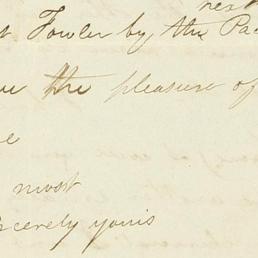 next
t. Fowler by the Pac
ue the pleasure of
e
most
incerely yours